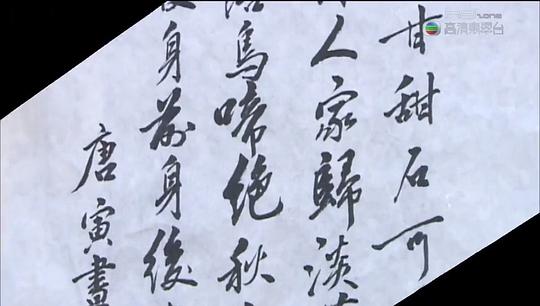 甘甜石可
人家歸淡
鳥啼絕秋
身前身後
唐寅畫
高清翡翠台